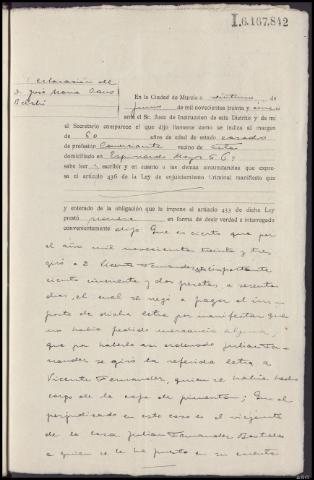 I.6.167.842
Declaración del
D. José María
En la Ciudad de Murcia a de
junio de mil novecientos treinta y cinco
ante el Sr. Juez de Instrucción de este Distrito y de mi
el Secretario comparece el que dijo llamarse como se indica al margen
de 60 años de edad de estado casado
de profesión Comerciante vecino de esta
domiciliado en Espinardo Mayor 56
sabe leer y escribir y en cuanto a las demás circunstancias que expre-
sa el artículo 436 de la Ley de enjuiciamiento Criminal manifestó que
y enterado de la obligación que le impone el artículo 433 de dicha Ley
prestó en forma de decir verdad e interrogado
convenientemente dijo: Que es cierto que por
el año mil novecientos treinta y tres
giró a D. Vicente Fernandez importante
ciento cincuenta y dos pesetas, a sesenta
dias, el cual se negó a pagar el im-
porte de dicha letra por manifestar que
no habia pedido mercancia alguna,
que por haberlo asi ordenado Julian Fer-
nandez se giró la referida letra a
Vicente Fernandez, quien se habia hecho
cargo de la caja de pimenton; Que el
perjudicado en este caso es el viajante
de la casa Julian Fernandez
a quien se le ha puesto en su cuenta